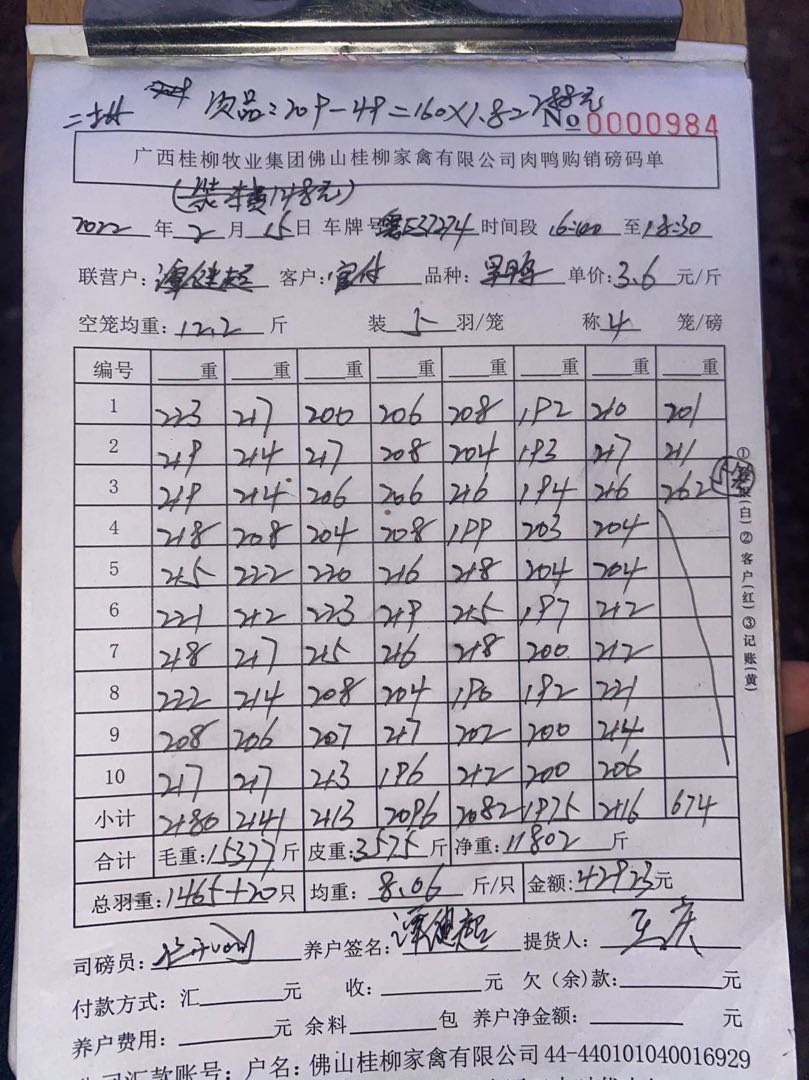 二批 次品:209-49=160×1.8=288元
No 0000984
广西桂柳牧业集团佛山桂柳家禽有限公司肉鸭购销磅码单
(装车费148元)
2022年2月15日 车牌号E37274 时间段16:00至18:30
联营户:谭健超 客户: 品种: 单价:3.6元/斤
空笼均重:12.2斤 装5羽/笼 称4笼/磅
编号 重 重 重 重 重 重 重 重
1 223 217 200 206 208 192 210 201
2 219 214 217 208 204 193 217 211
3 219 214 206 206 216 194 216 262 5笼
4 218 208 204 208 199 203 204
5 215 222 220 216 218 204 204
6 221 212 223 219 215 197 212
7 218 217 215 216 218 200 212
8 222 214 208 204 190 192 221
9 208 206 207 217 202 200 214
10 217 217 213 196 212 200 206
小计 2180 2141 2113 2096 2082 1975 2116 674
合计 毛重:15377斤 皮重:3575斤 净重:11802斤
总羽重:1465+20只 均重:8.06斤/只 金额:42923元
司磅员: 养户签名:谭健超 提货人:王庆
付款方式:汇 元 收: 元 欠(余)款: 元
养户费用: 元 余料 包 养户净金额: 元
公司汇款账号:户名:佛山桂柳家禽有限公司44-440101040016929
①(白)②客户(红)③记账(黄)